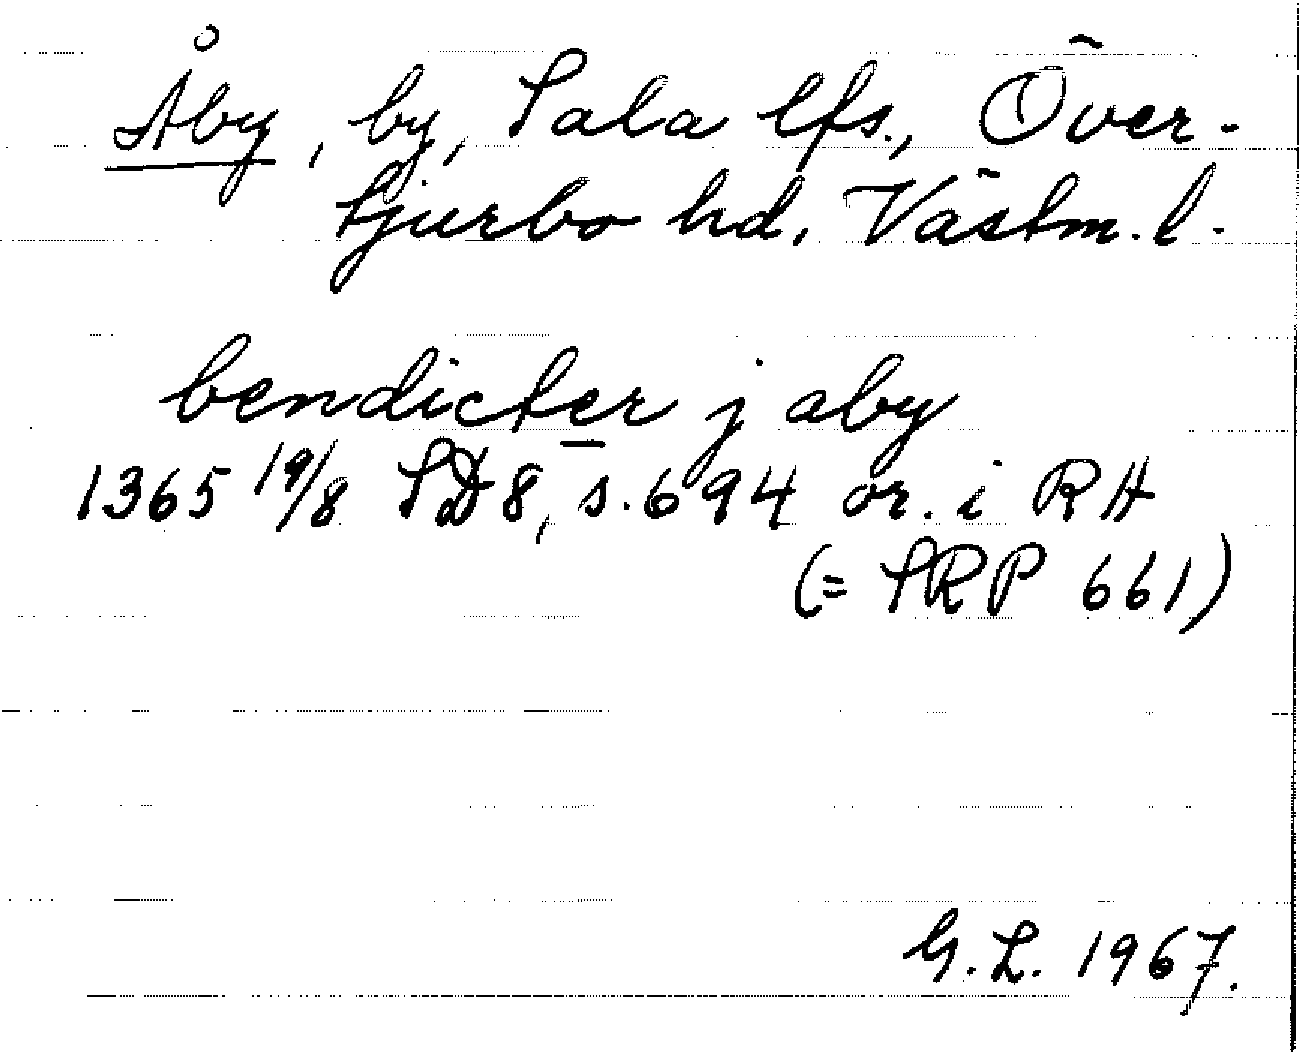 Åby, by, Sala lfs., Över-
tjurbo hd, Västm. l.
bendicter j aby
1365 19/8 SD8, s. 694 or. i RA
(= SRP 661)
G. L. 1967.